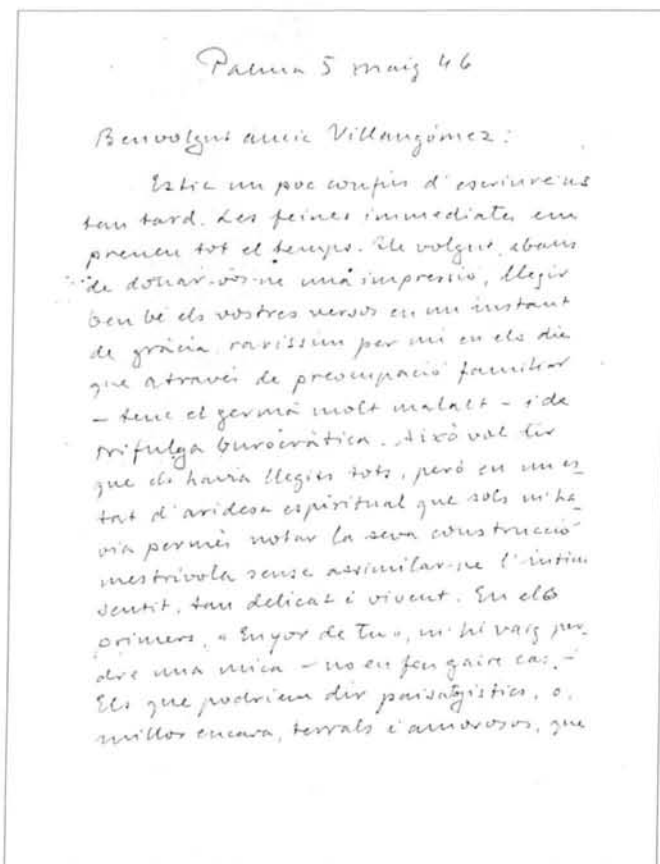 Palma 5 maig 46
Benvolgut amic Villangómez:
Estic un poc confús d'escriure us
tan tard. Les feines immediates em
prenen tot el temps. He volgut, abans
de donar-vos-ne una impressió, llegir
ben bé els vostres versos en un instant
de gràcia, raríssim per mi en els dies
que atravès de preocupació familiar
- tenc el germà molt malalt - i de
trifulga burocràtica. Això vol dir
que els havia llegits tots, però en un es_
tat d'aridesa espiritual que sols m'ha_
via permès notar la seva construcció
mestrívola sense assimilar-ne l'íntim
sentit, tan delicat i vivent. En els
primers, "Enyor de Tu", m'hi vaig per_
dre una mica - no en feu gaire cas. -
Els que podríem dir paisatgístics, o,
millor encara, terrals i amorosos, que